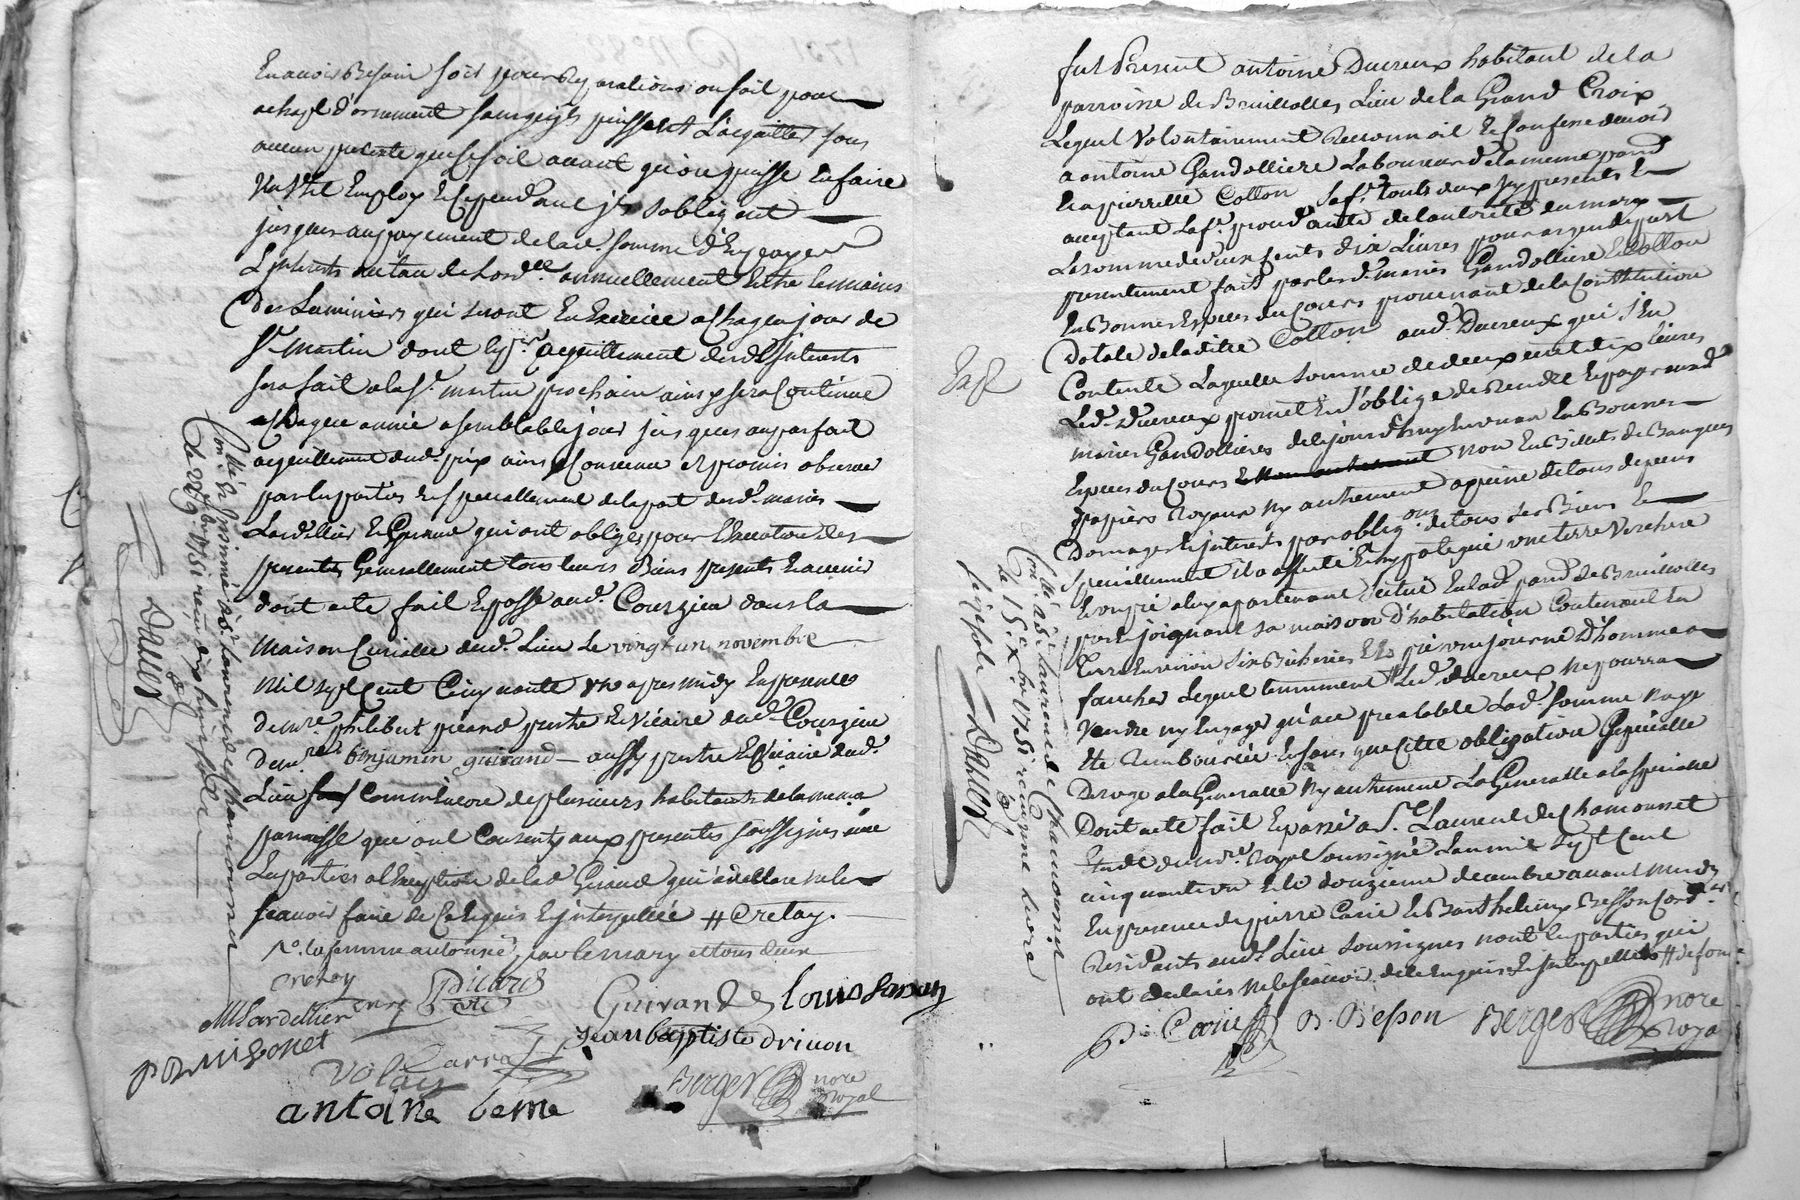 En avoir Besoin soit pour Reparations ou soit pour
achapt d'ornement sans qu'ils puissent L'aquitter sous
aucun pretexte que se soit avant qu'on puisse En faire
Un Util Employ Et Cependant ils s'obligent
jusques au payement de lad. somme d'En payer
L'interets au taux de Lord.ce annuellement Entre les mains
Des Luminiers qui seront En Exercice a Chaque jour de
St Martin dont le pr. acquittement desd. Interets
sera fait a la St. martin prochain ainsy sera Continué
Chaque année a semblable jour jusques au parfait
acquittement dud. prix ainsy Convenu Et promis observer
par Les parties Et speciallement de la part desd. mariés
Lardellier Et Giraud qui ont obligés pour L'Execution des
presentes Generallement tous leurs Biens presents Et avenir
dont acte fait Et passé aud. Courzieu dans la
Maison Curialle dud. Lieu Le vingt un novembre
Mil sept Cent Cinquante Un apres midy En presence
de mre. philibert picard prestre Et Vicaire dud. Courzieu
de mre. binjamin guirand aussy prestre Et Vicaire dud.
Lieu Comm'Encore de plusieurs habitants de la meme
parroisse qui ont Consenty aux presentes soussignés avec
Les parties a l'Exception de lad. Giraud qui a declaré ne le
scavoir faire de Ce Enquis Et interpellée # Cretay.
la femme autorisée par le mary et tous deux
cretay
Picard
vic
Guirand
louis
MLardellier
jean baptiste drivon
volay
antoine berne
Berger nore royal
Conllé Et Insinué à St. Laurent de Chamousset
Le 1751 reçu dix huit
Dauer
fut Present antoine Ducreux habitant de la
parroisse de Brullolles Lieu de la Grand Croix
Lequel Volontairement Reconnoit Et Confesse devoir
a antoine Gandolliere Laboureur de la meme paroisse
Et a pierrette Cotton sa fe. touts deux icy presents Et
acceptant Lad. proced. ante de l'autorité du mary
La somme de deux Cents dix Livres pour argent de prest
presentement fait par lesd. mariés Gandolliere Et Cotton
En Bonnes Especes du Cours provenant de la Constitution
Dotale de la ditte Cotton aud. Ducreux qui s'En
Contente Laquelle somme de deux cent dix livres
Led. Ducreux promet Et s'oblige de Rendre Et payer auxd.
mariés Gandollieres de ce jourd'huy En un an En Bonnes
Especes du Cours non En Billets de Banques
papiers Royaux ny autrement a peine de tous depens
Domages Et interets par obligon. de tous ses Biens Et
specialement il a affecté Et hypotequé une terre Verchere
Et un pré a luy apartenant situé En lad. parse. de Brullolles
pres joignant sa maison d'habitation Contenant La
terre Environ six Bicherées Et Le pré un journé d'homme a
faucher Lequel tennement Led. Ducreux ne pourra
Vendre ny Engager qu'au prealable Lad. somme payé
Et Remboursée Et sans que Cette obligation speciale
Deroge a la Generalle Ny autrement La Generalle a la speciale
Dont acte fait Et passé a St. Laurent de Chamousset
Etude du nore. royal soussigné L'an mil sept Cent
cinquante un Et le douzieme decembre avant midy
En presence de pierre Carrié Et Barthelemy Besson Cord.er
Residants aud. Lieu soussignés non Les parties qui
ont declarés ne le scavoir de ce Enquis Et Interpellés
P. Carrié B. Besson Berger nore royal
Exp
Conllé à St. Laurent de Chamousset
Le 15 Xbre 1751 reçu une livre
six sols
Dauer